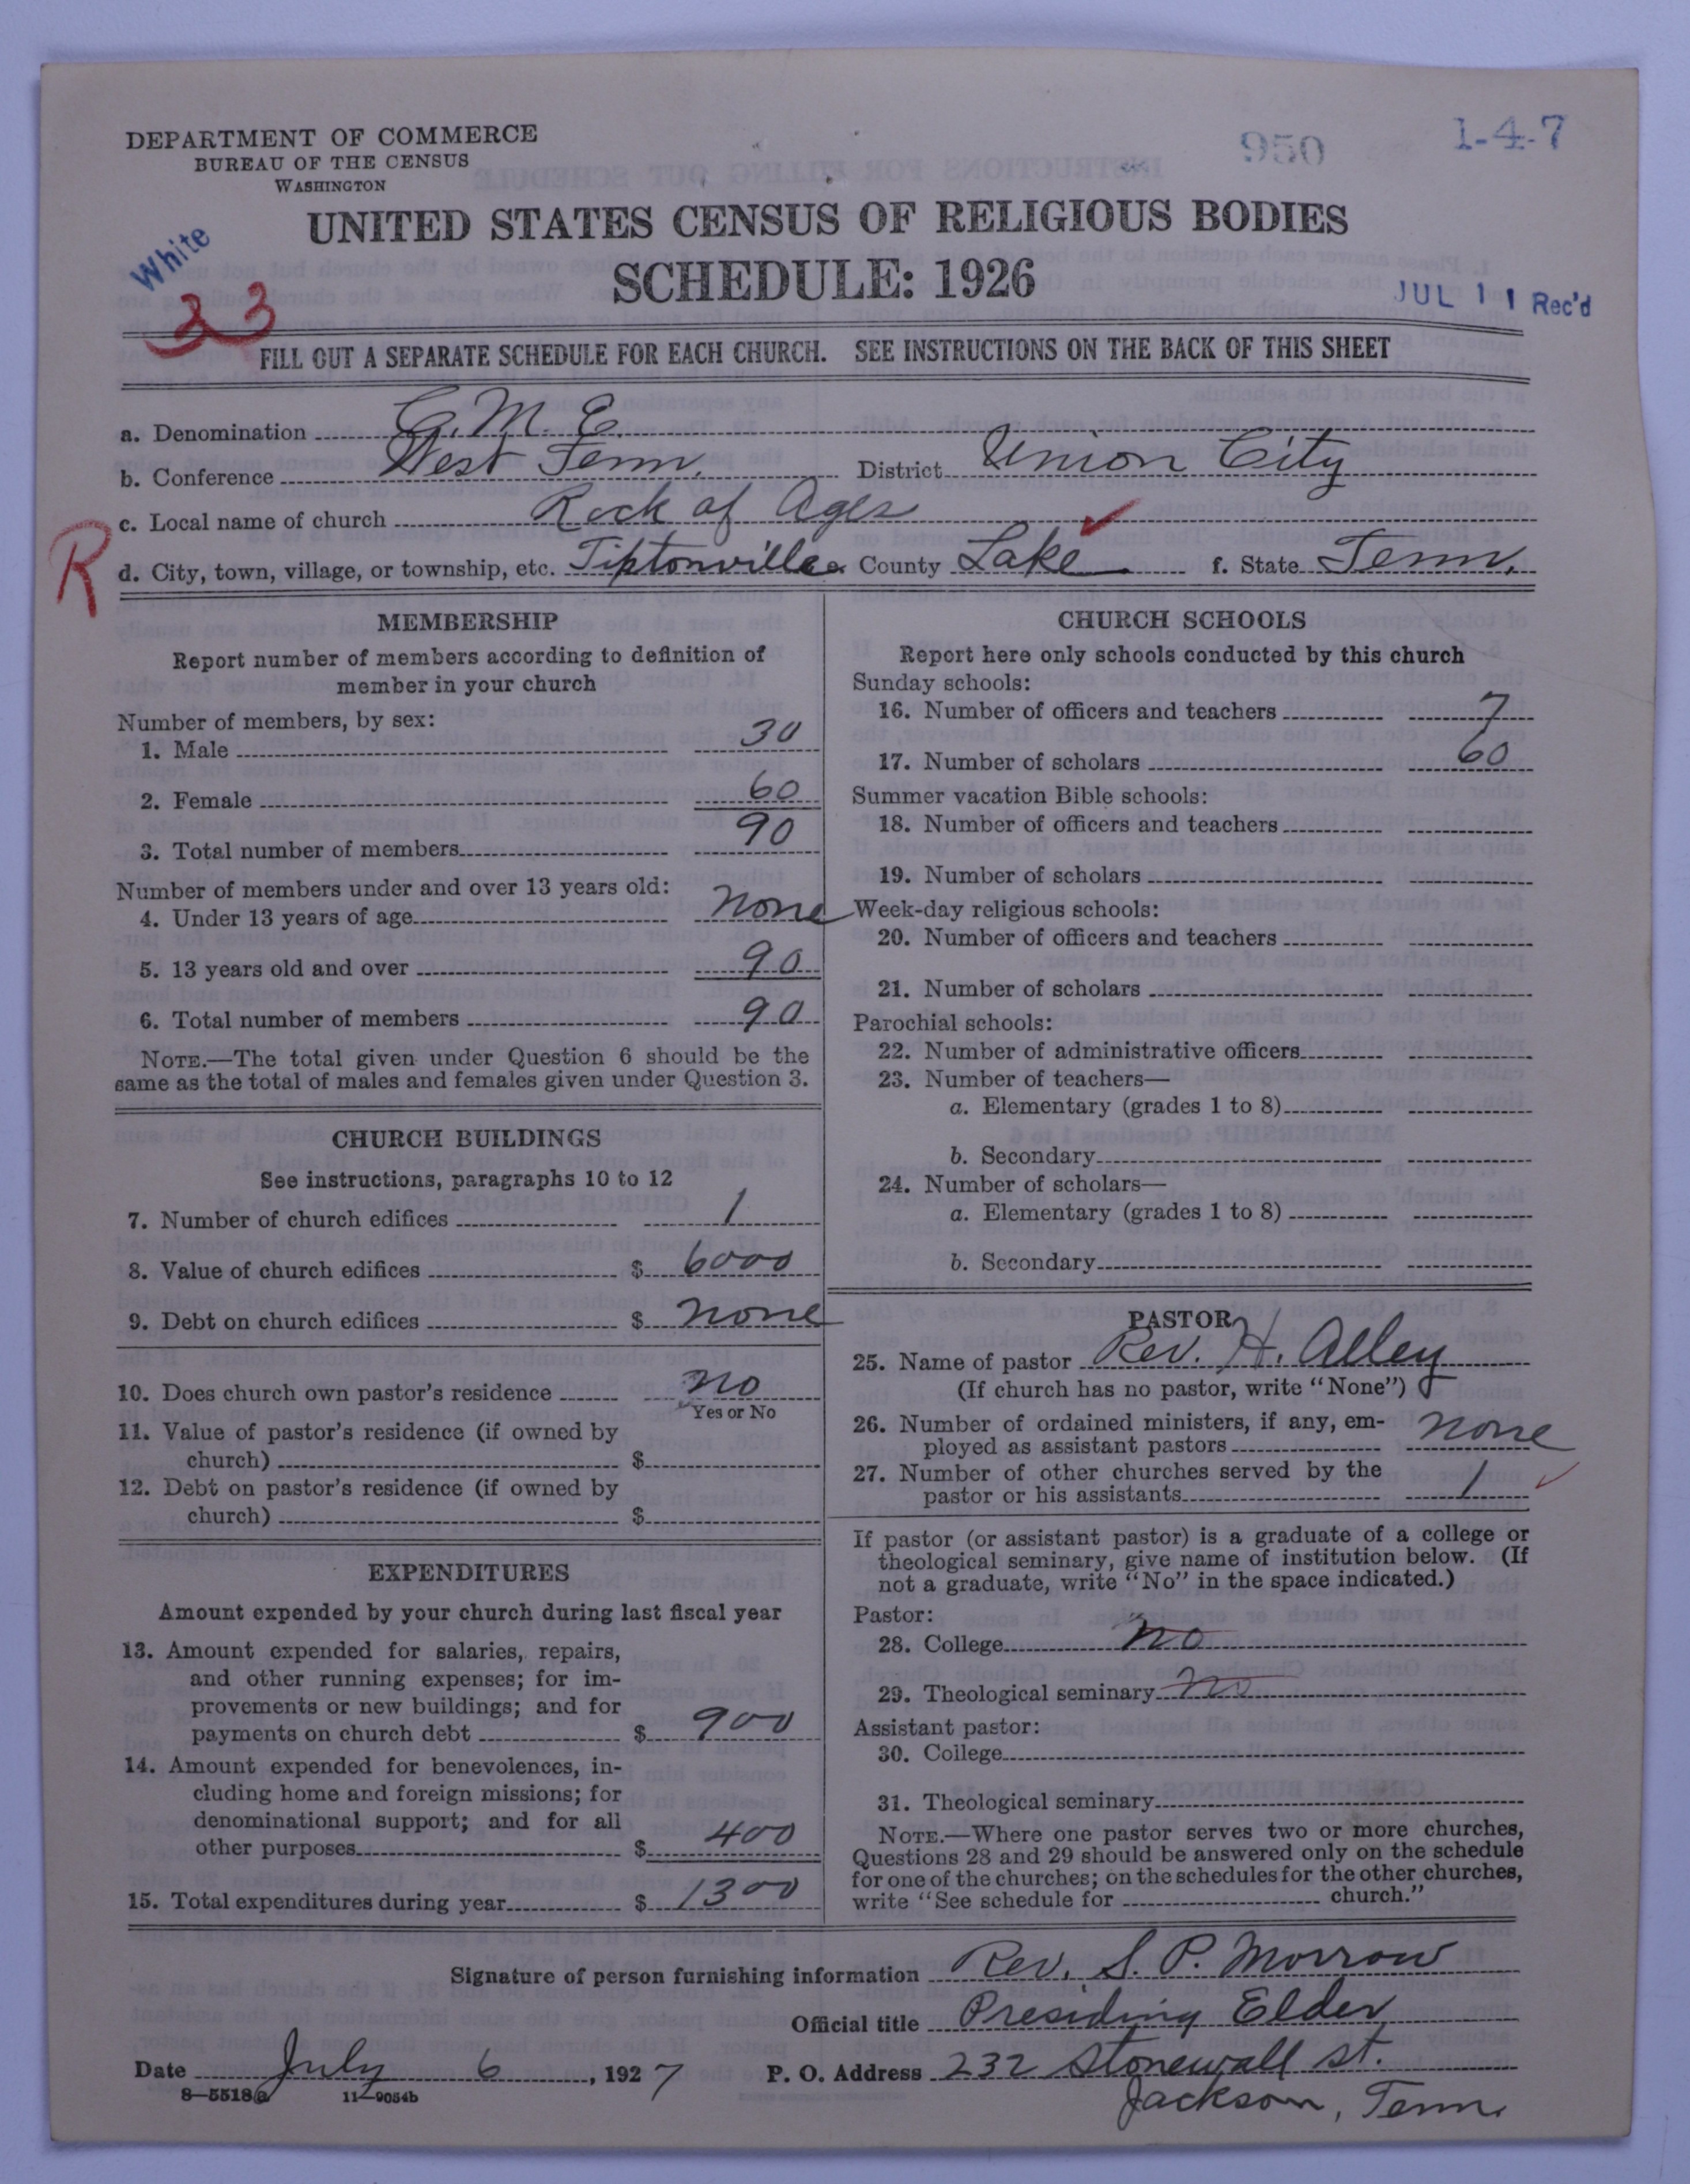 DEPARTMENT OF COMMERCE
BUREAU OF THE CENSUS
WASHINGTON
950
1-4-7
UNITED STATES CENSUS OF RELIGIOUS BODIES
White
SCHEDULE: 1926
33
JUL 11 Rec'd
FILL OUT A SEPARATE SCHEDULE FOR EACH CHURCH. SEE INSTRUCTIONS ON THE BACK OF THIS SHEET
a. Denomination C. M. E.
b. Conference West Tenn. District Union City
c. Local name of church Rock of Ages
R
d. City, town, village, or township, etc. Tiptonville e. County Lake f. State Tenn.
MEMBERSHIP
Report number of members according to definition of
member in your church
Number of members, by sex:
1. Male 30
2. Female 60
3. Total number of members 90
Number of members under and over 13 years old:
4. Under 13 years of age none
5. 13 years old and over 90
6. Total number of members 90
NOTE.—The total given under Question 6 should be the
same as the total of males and females given under Question 3.
CHURCH BUILDINGS
See instructions, paragraphs 10 to 12
7. Number of church edifices 1
8. Value of church edifices $ 6000
9. Debt on church edifices $ none
10. Does church own pastor's residence no
Yes or No
11. Value of pastor's residence (if owned by
church) $
12. Debt on pastor's residence (if owned by
church) $
EXPENDITURES
Amount expended by your church during last fiscal year
13. Amount expended for salaries, repairs,
and other running expenses; for im-
provements or new buildings; and for
payments on church debt $ 900
14. Amount expended for benevolences, in-
cluding home and foreign missions; for
denominational support; and for all
other purposes $ 400
15. Total expenditures during year $ 1300
CHURCH SCHOOLS
Report here only schools conducted by this church
Sunday schools:
16. Number of officers and teachers 7
17. Number of scholars 60
Summer vacation Bible schools:
18. Number of officers and teachers
19. Number of scholars
Week-day religious schools:
20. Number of officers and teachers
21. Number of scholars
Parochial schools:
22. Number of administrative officers
23. Number of teachers—
a. Elementary (grades 1 to 8)
b. Secondary
24. Number of scholars—
a. Elementary (grades 1 to 8)
b. Secondary
PASTOR
25. Name of pastor Rev. H. Alley
(If church has no pastor, write "None")
26. Number of ordained ministers, if any, em-
ployed as assistant pastors none
27. Number of other churches served by the
pastor or his assistants 1
If pastor (or assistant pastor) is a graduate of a college or
theological seminary, give name of institution below. (If
not a graduate, write "No" in the space indicated.)
Pastor:
28. College no
29. Theological seminary no
Assistant pastor:
30. College
31. Theological seminary
NOTE.—Where one pastor serves two or more churches,
Questions 28 and 29 should be answered only on the schedule
for one of the churches; on the schedules for the other churches,
write "See schedule for church."
Signature of person furnishing information Rev. S. P. Morrow
Official title Presiding Elder
Date July 6, 1927 P. O. Address 232 Stonewall st.
8—5518a 11—9054b Jackson, Tenn.